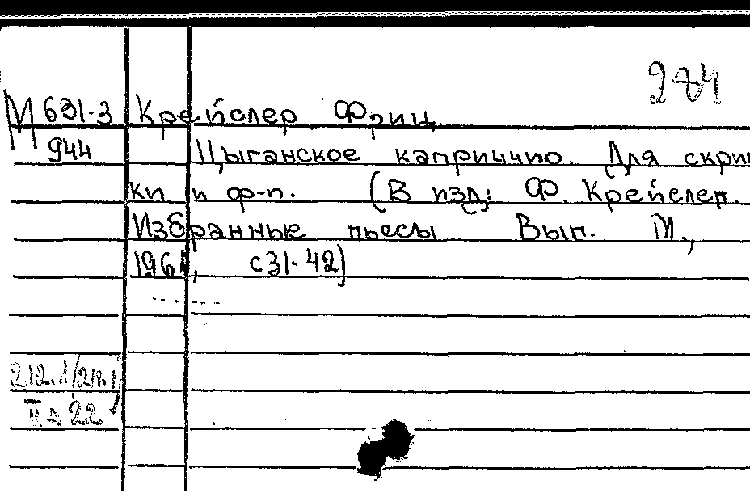 284
М 631-3 Крейслер Фриц
944 Цыганское каприччио. Для скрип
ки и ф-п. (В изд: Ф. Крейслер.
Избранные пьесы Вып. М,
196 с 31-42)
22